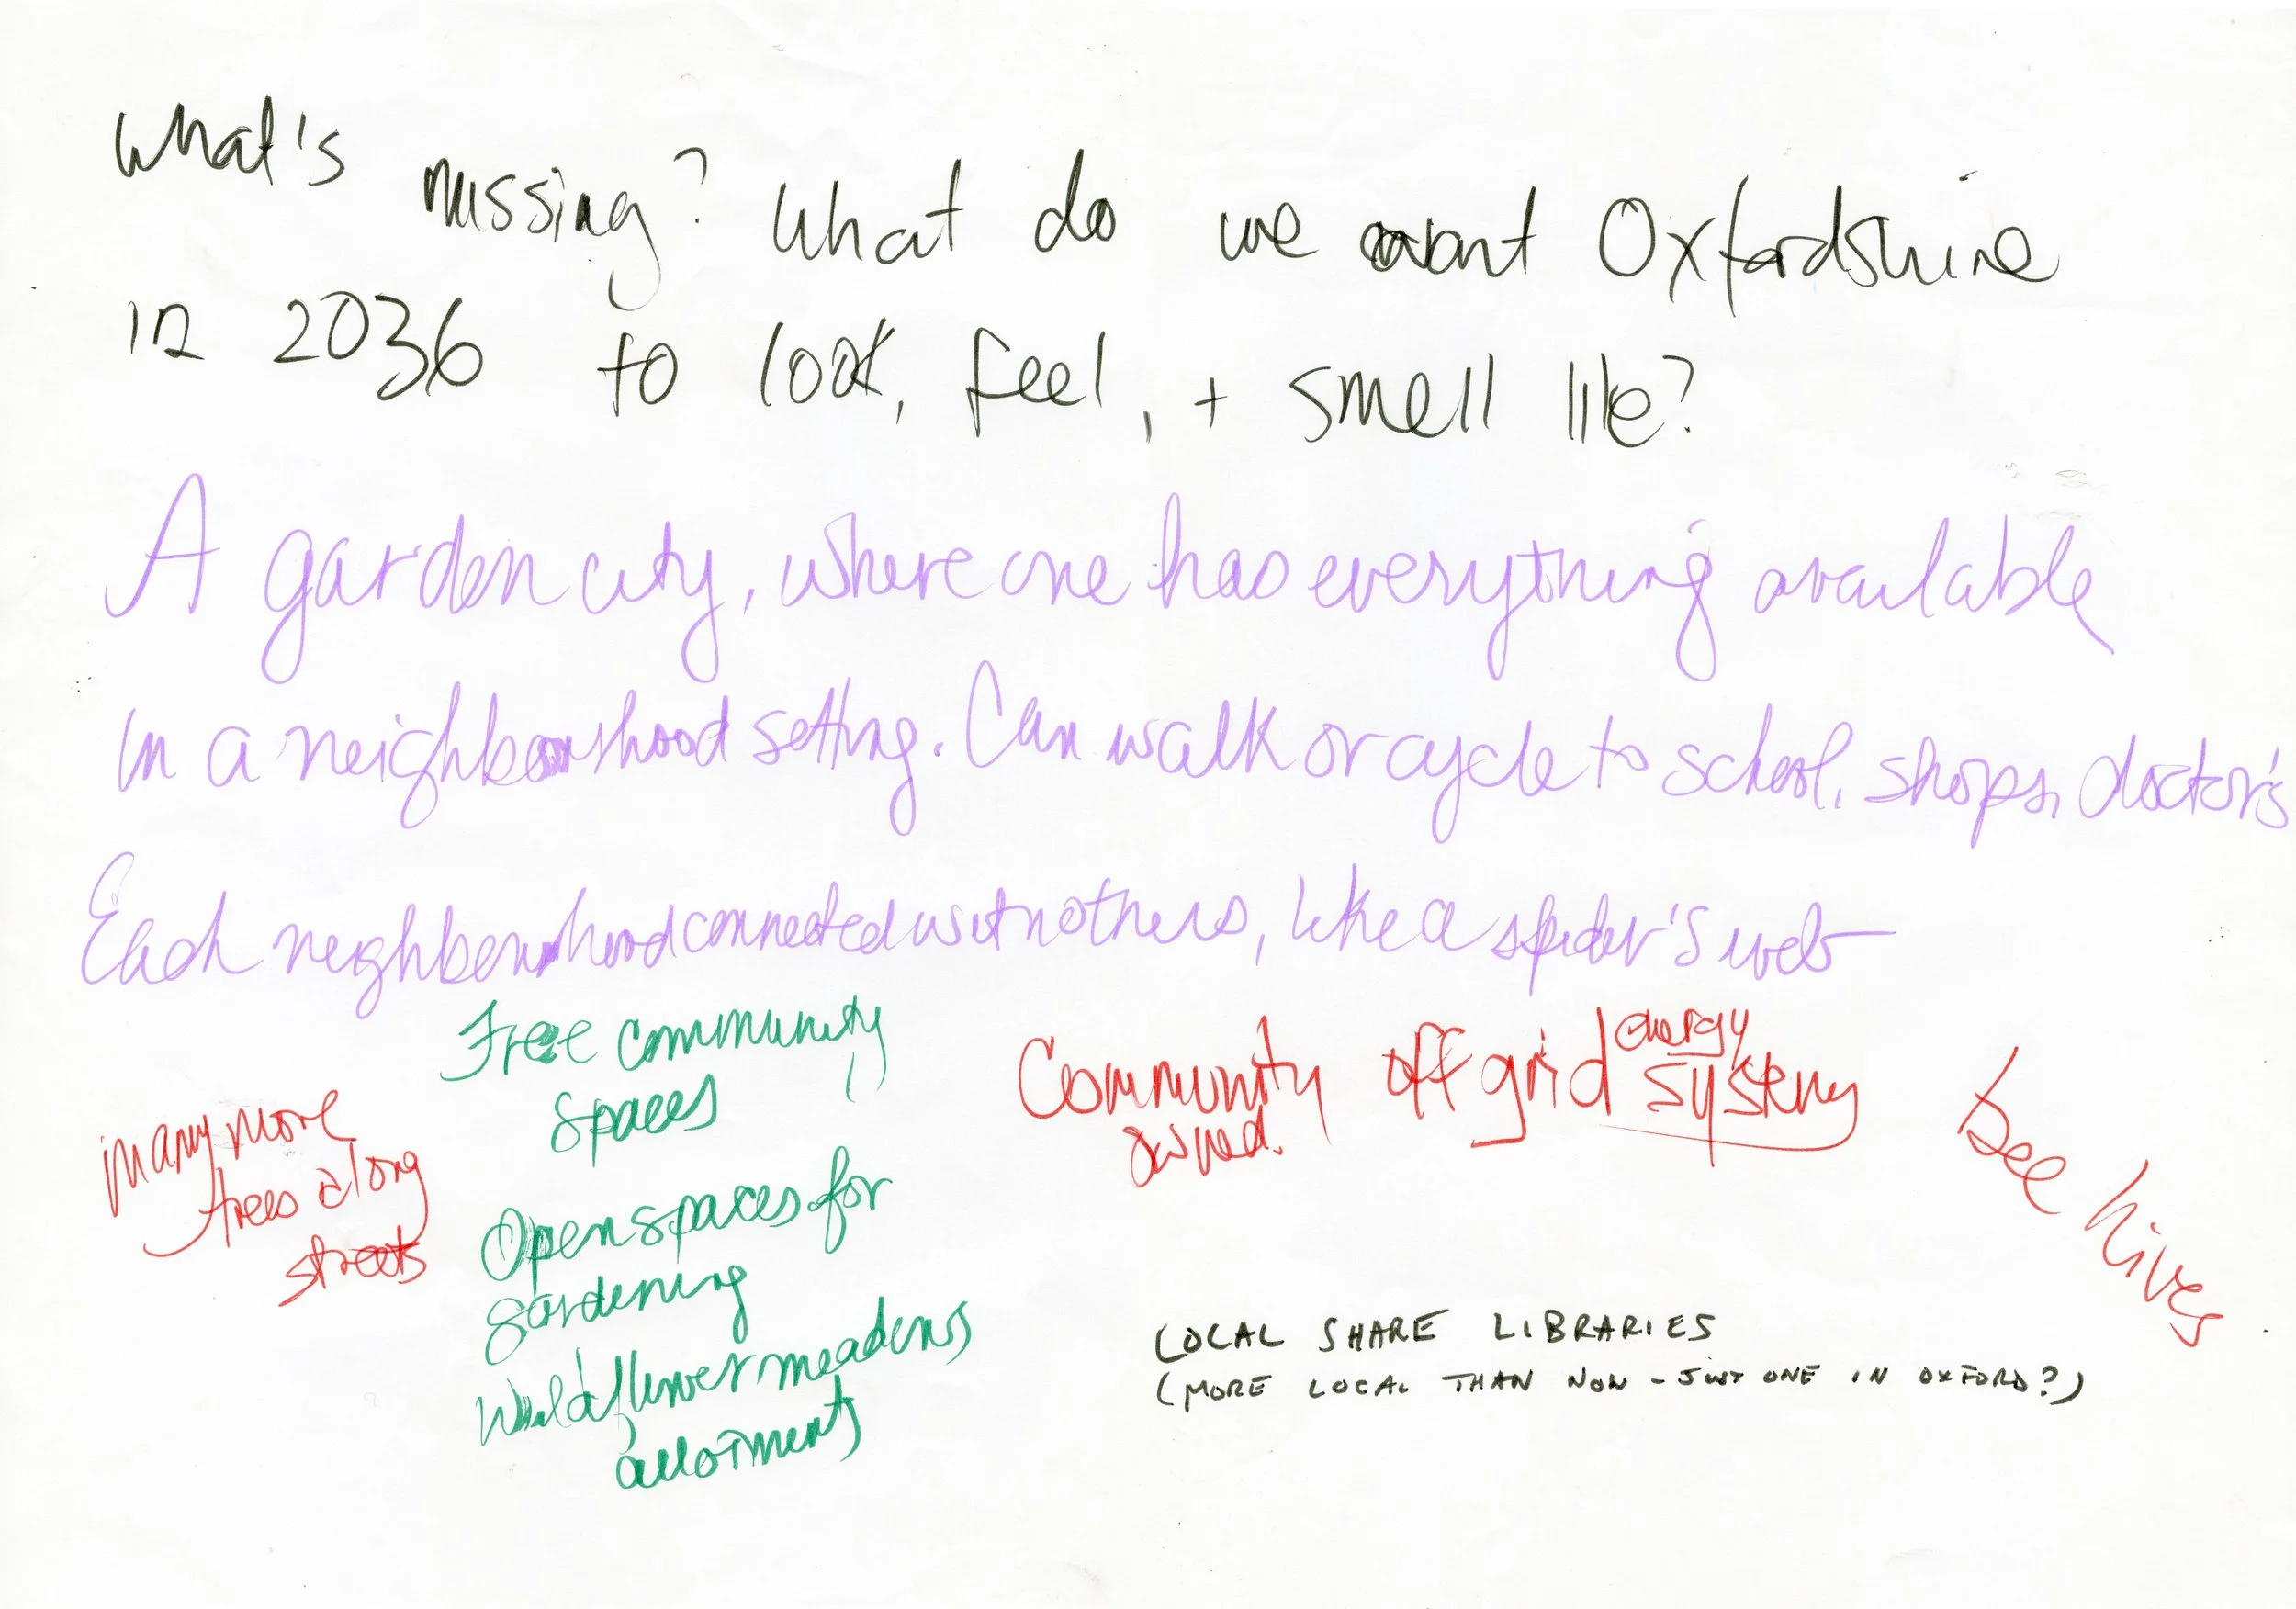 What's missing? What do we want Oxfordshire
in 2036 to look, feel, + smell like?
A garden city, where one has everything available
in a neighbourhood setting. Can walk or cycle to school, shops, doctor's
Each neighbourhood connected with others, like a spider's web
Free community
spaces
Many more
trees along
streets
Open spaces for
gardening
Wildflower meadows
allotments
Community off grid energy systems
owned.
bee hives
LOCAL SHARE LIBRARIES
(MORE LOCAL THAN NOW - JUST ONE IN OXFORD?)